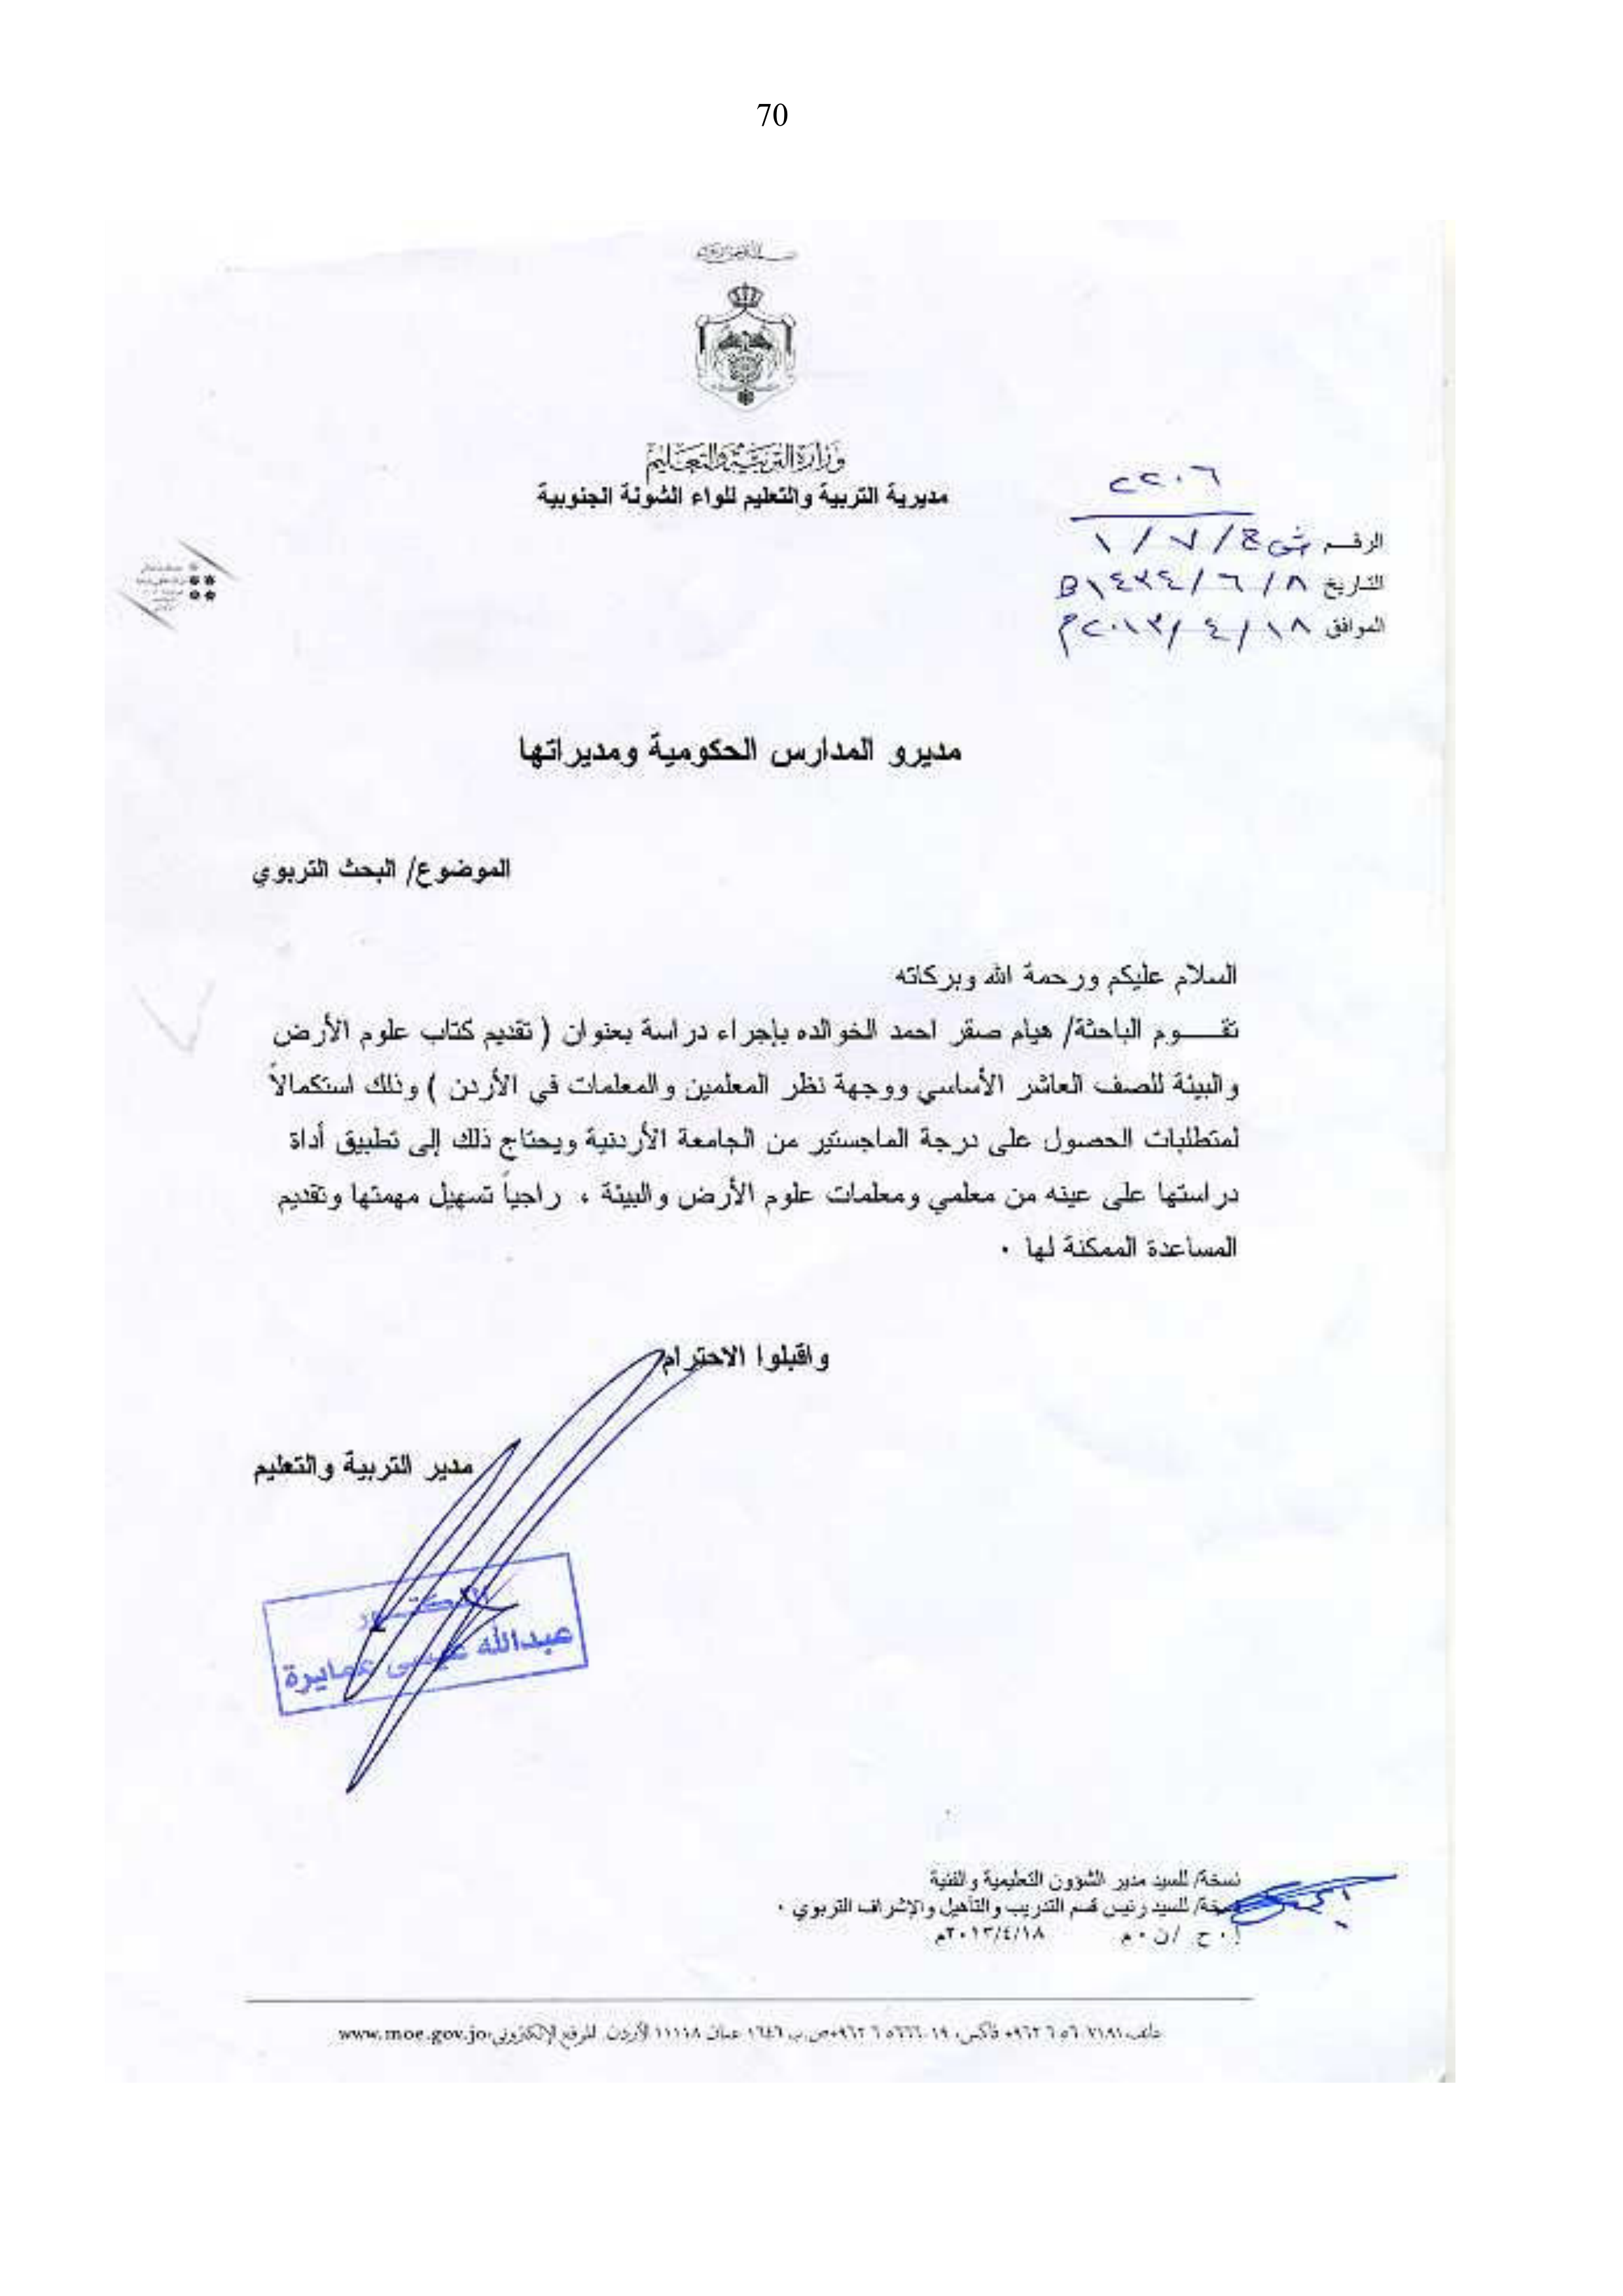 70
وزارة التربية والتعليم
مديرية التربية والتعليم للواء الشونة الجنوبية
٢٢٠٦
الرقم ش ج / ٧ / ١
التاريخ ٨ / ٦ / ١٤٣٤ه
الموافق ١٨ / ٤ / ٢٠١٣م
مديرو المدارس الحكومية ومديراتها
الموضوع/ البحث التربوي
السلام عليكم ورحمة الله وبركاته
تقـــوم الباحثة/ هيام صقر احمد الخوالده بإجراء دراسة بعنوان ( تقديم كتاب علوم الأرض
والبيئة للصف العاشر الأساسي ووجهة نظر المعلمين والمعلمات في الأردن ) وذلك استكمالاً
لمتطلبات الحصول على درجة الماجستير من الجامعة الأردنية ويحتاج ذلك إلى تطبيق أداة
دراستها على عينه من معلمي ومعلمات علوم الأرض والبيئة ، راجياً تسهيل مهمتها وتقديم
المساعدة الممكنة لها ٠
واقبلوا الاحترام
مدير التربية والتعليم
الدكتـــور
عبدالله عيسى عمايرة
نسخة/ للسيد مدير الشؤون التعليمية والفنية
نسخة/ للسيد رئيس قسم التدريب والتأهيل والإشراف التربوي ٠
أ ٠ ح / ن ٠ م ٢٠١٣/٤/١٨م
هاتف: ٥٦٠٧١٨١ ٦ ٩٦٢+ فاكس: ٥٦٦٦٠١٩ ٦ ٩٦٢+ ص.ب ١٦٤٦ عمان ١١١١٨ الأردن. الموقع الإلكتروني: www.moe.gov.jo